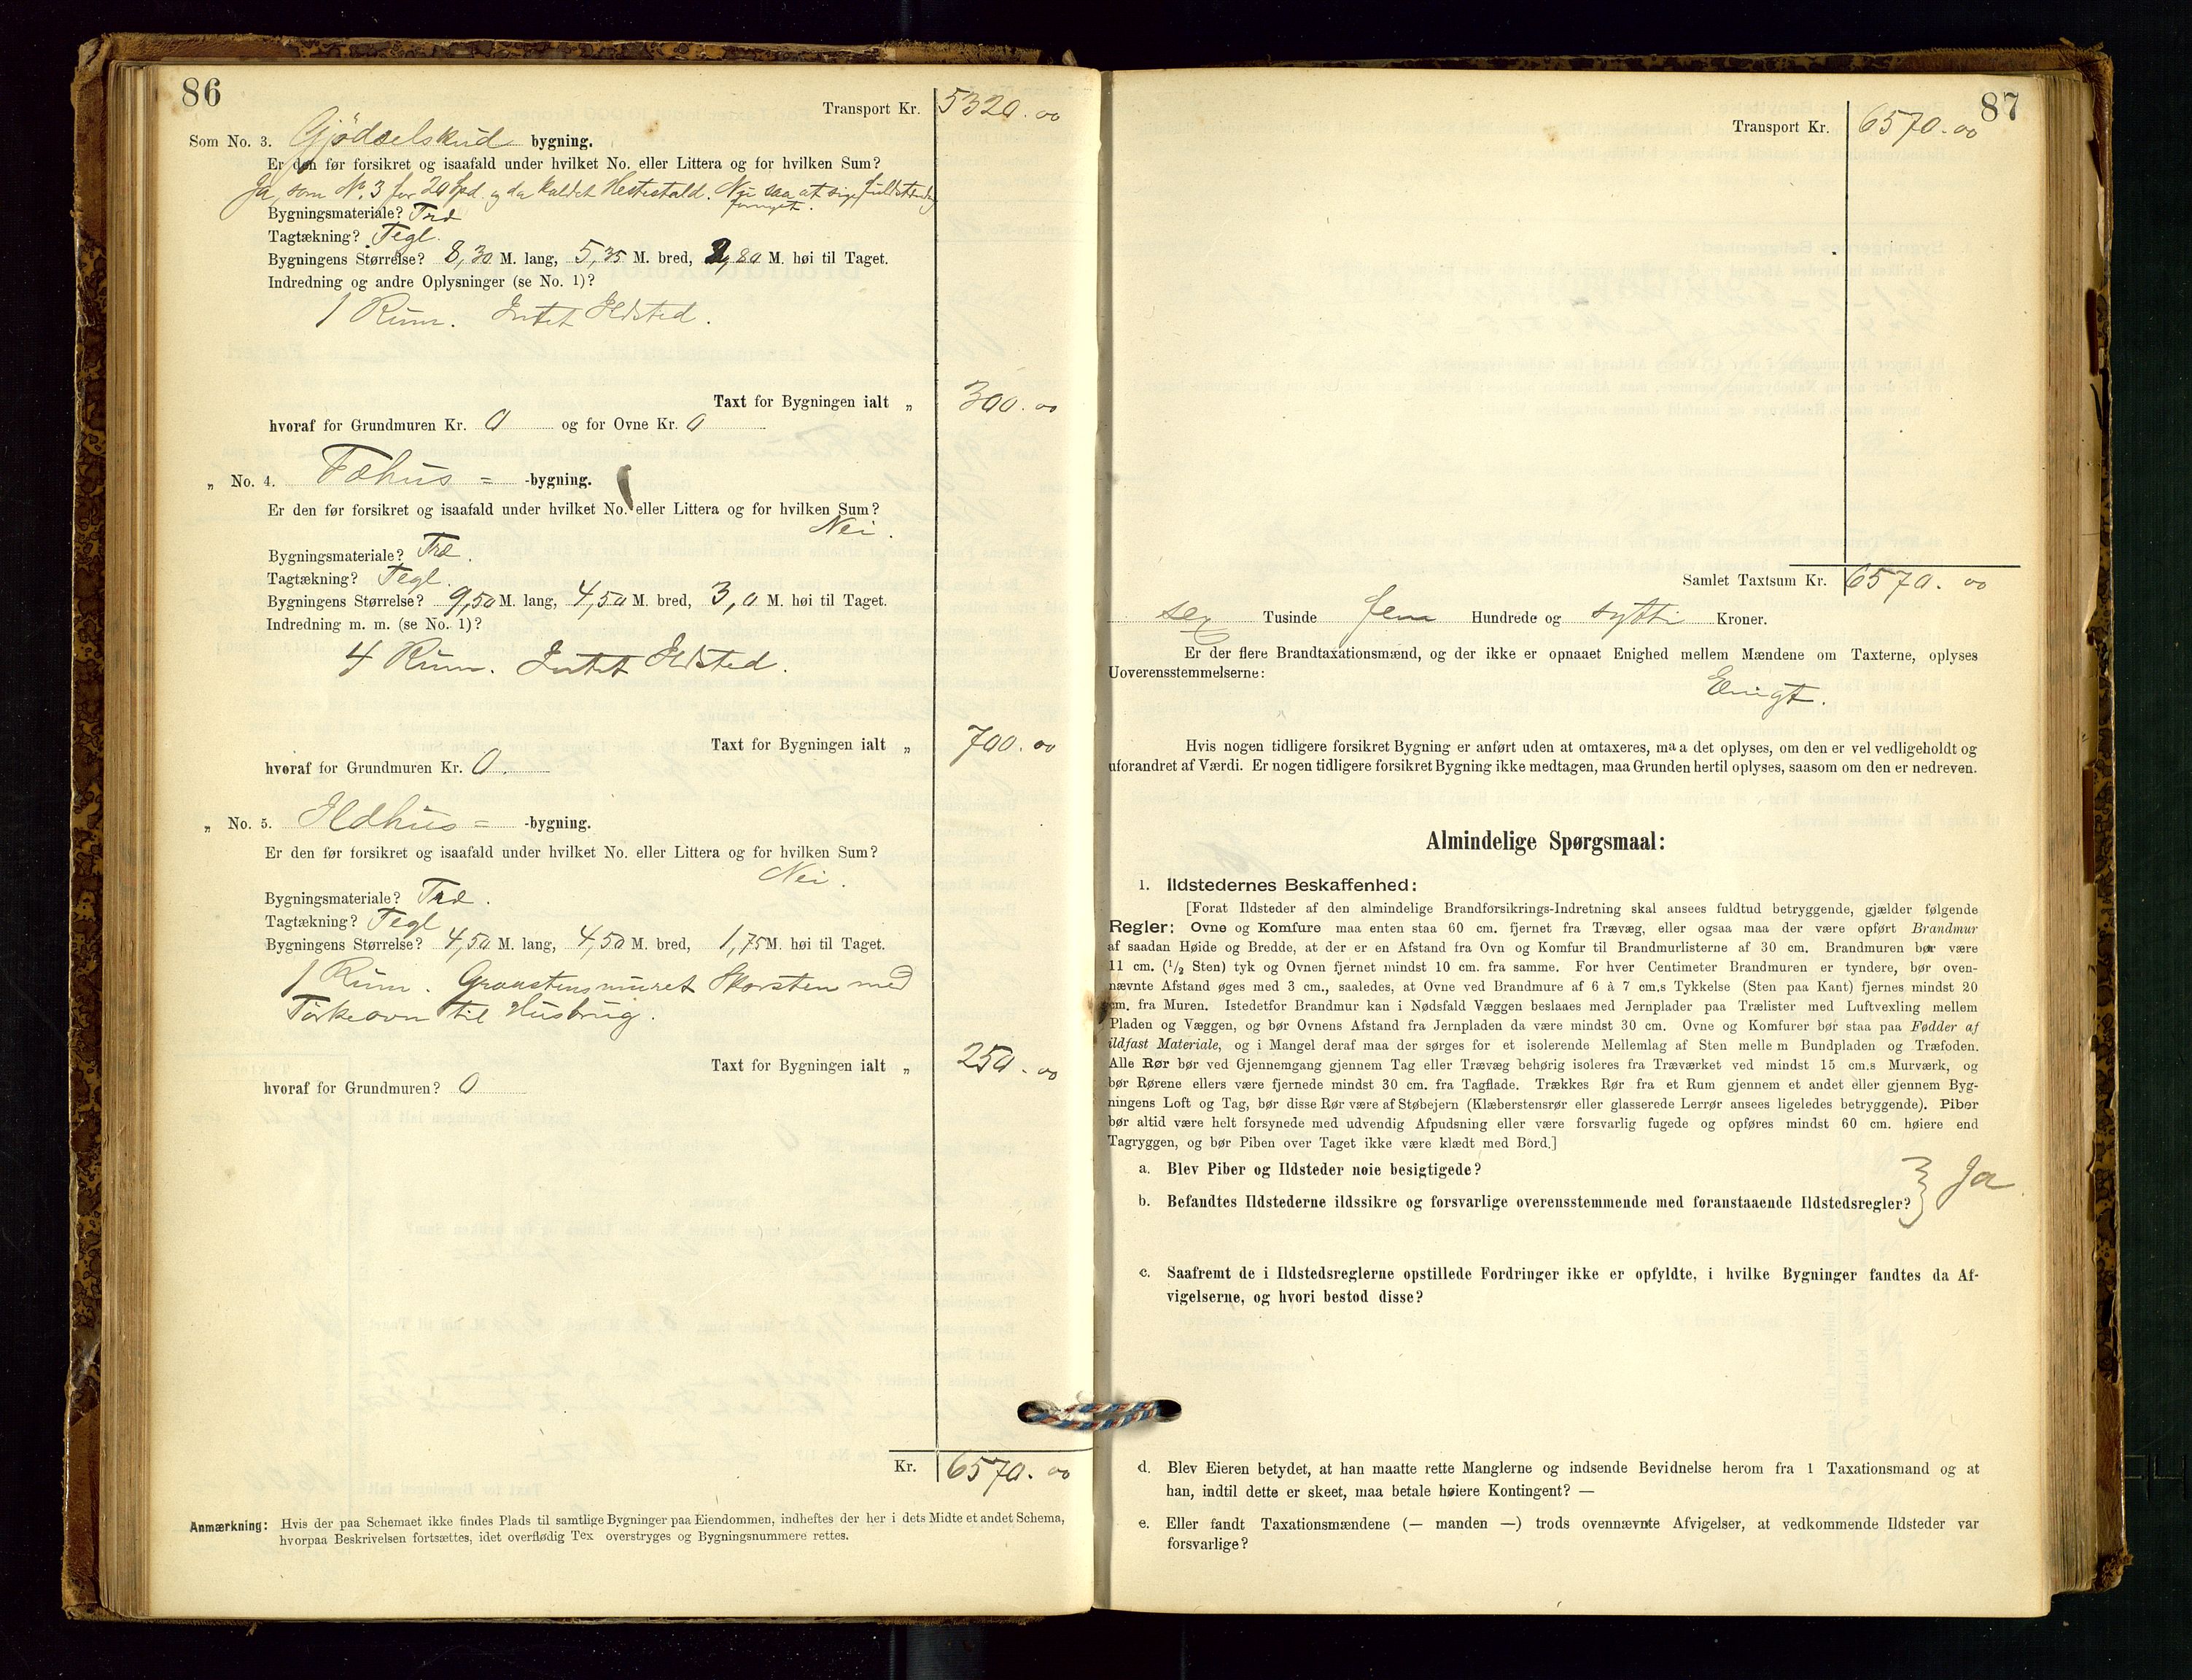 86
Transport Kr. 5320.00
Som No. 3. Gjødselskud bygning.
Er den før forsikret og isaafald under hvilket No. eller Littera og for hvilken Sum?
Ja, som No. 3 for 20 Spd. og da kaldet Hestestald. Nu saa at sige fuldstændig
fornyet.
Bygningsmateriale? Træ
Tagtækning? Tegl.
Bygningens Størrelse? 8,30 M. lang, 5,35 M. bred, 2,80 M. høi til Taget.
Indredning og andre Oplysninger (se No. 1)?
1 Rum. Intet Ildsted.
Taxt for Bygningen ialt „ 300.00
hvoraf for Grundmuren Kr. 0 og for Ovne Kr. 0
„ No. 4. Fæhus = -bygning.
Er den før forsikret og isaafald under hvilket No. eller Littera og for hvilken Sum?
Nei.
Bygningsmateriale? Træ.
Tagtækning? Tegl.
Bygningens Størrelse? 9,50 M. lang, 4,50 M. bred, 3,0 M. høi til Taget.
Indredning m. m. (se No. 1)?
4 Rum. Intet Ildsted.
Taxt for Bygningen ialt „ 700.00
hvoraf for Grundmuren Kr. 0.
„ No. 5. Ildhus = -bygning.
Er den før forsikret og isaafald under hvilket No. eller Littera og for hvilken Sum?
Nei.
Bygningsmateriale? Træ.
Tagtækning? Tegl
Bygningens Størrelse? 4,50 M. lang, 4,50 M. bred, 1,75 M. høi til Taget.
1 Rum. Graastensmuret Skorsten med
Tørkeovn til Husbrug.
Taxt for Bygningen ialt „ 250.00
hvoraf for Grundmuren? 0
Kr. 6570.00
Anmærkning: Hvis der paa Schemaet ikke findes Plads til samtlige Bygninger paa Eiendommen, indheftes der her i dets Midte et andet Schema,
hvorpaa Beskrivelsen fortsættes, idet overflødig Tex overstryges og Bygningsnummere rettes.
87
Transport Kr. 6570.00
Samlet Taxtsum Kr. 6570.00
sex Tusinde fem Hundrede og sytti Kroner.
Er der flere Brandtaxationsmænd, og der ikke er opnaaet Enighed mellem Mændene om Taxterne, oplyses
Uoverensstemmelserne:
Enigt.
Hvis nogen tidligere forsikret Bygning er anført uden at omtaxeres, maa det oplyses, om den er vel vedligeholdt og
uforandret af Værdi. Er nogen tidligere forsikret Bygning ikke medtagen, maa Grunden hertil oplyses, saasom om den er nedreven.
Almindelige Spørgsmaal:
1. Ildstedernes Beskaffenhed:
[Forat Ildsteder af den almindelige Brandforsikrings-Indretning skal ansees fuldtud betryggende, gjælder følgende
Regler: Ovne og Komfure maa enten staa 60 cm. fjernet fra Trævæg, eller ogsaa maa der være opført Brandmur
af saadan Høide og Bredde, at der er en Afstand fra Ovn og Komfur til Brandmurlisterne af 30 cm. Brandmuren bør være
11 cm. (1/2 Sten) tyk og Ovnen fjernet mindst 10 cm. fra samme. For hver Centimeter Brandmuren er tyndere, bør oven-
nævnte Afstand øges med 3 cm., saaledes, at Ovne ved Brandmure af 6 à 7 cm.s Tykkelse (Sten paa Kant) fjernes mindst 20
cm. fra Muren. Istedetfor Brandmur kan i Nødsfald Væggen beslaaes med Jernplader paa Trælister med Luftvexling mellem
Pladen og Væggen, og bør Ovnens Afstand fra Jernpladen da være mindst 30 cm. Ovne og Komfurer bør staa paa Fødder af
ildfast Materiale, og i Mangel deraf maa der sørges for et isolerende Mellemlag af Sten mellem Bundpladen og Træfoden.
Alle Rør bør ved Gjennemgang gjennem Tag eller Trævæg behørig isoleres fra Træværket ved mindst 15 cm.s Murværk, og
bør Rørene ellers være fjernede mindst 30 cm. fra Tagflade. Trækkes Rør fra et Rum gjennem et andet eller gjennem Byg-
ningens Loft og Tag, bør disse Rør være af Støbejern (Klæberstensrør eller glasserede Lerrør ansees ligeledes betryggende). Piber
bør altid være helt forsynede med udvendig Afpudsning eller være forsvarlig fugede og opføres mindst 60 cm. høiere end
Tagryggen, og bør Piben over Taget ikke være klædt med Bord.]
a. Blev Piber og Ildsteder nøie besigtigede?
b. Befandtes Ildstederne ildssikre og forsvarlige overensstemmende med foranstaaende Ildstedsregler? } Ja
c. Saafremt de i Ildstedsreglerne opstillede Fordringer ikke er opfyldte, i hvilke Bygninger fandtes da Af-
vigelserne, og hvori bestod disse?
d. Blev Eieren betydet, at han maatte rette Manglerne og indsende Bevidnelse herom fra 1 Taxationsmand og at
han, indtil dette er skeet, maa betale høiere Kontingent? —
e. Eller fandt Taxationsmændene (— manden —) trods ovennævnte Afvigelser, at vedkommende Ildsteder var
forsvarlige?